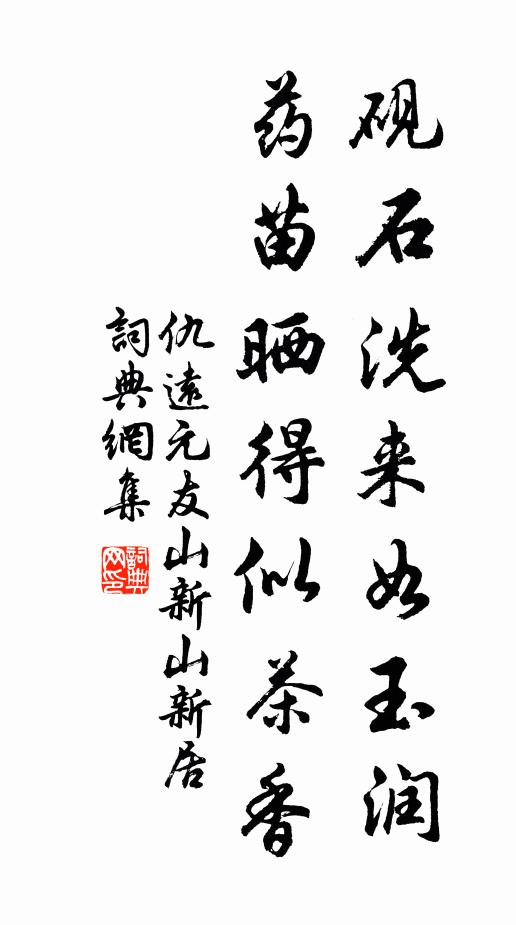 砚石洗来如玉润
药苗晒得似茶香
仇遠元友山新山新居
詞典網集
詞典网印